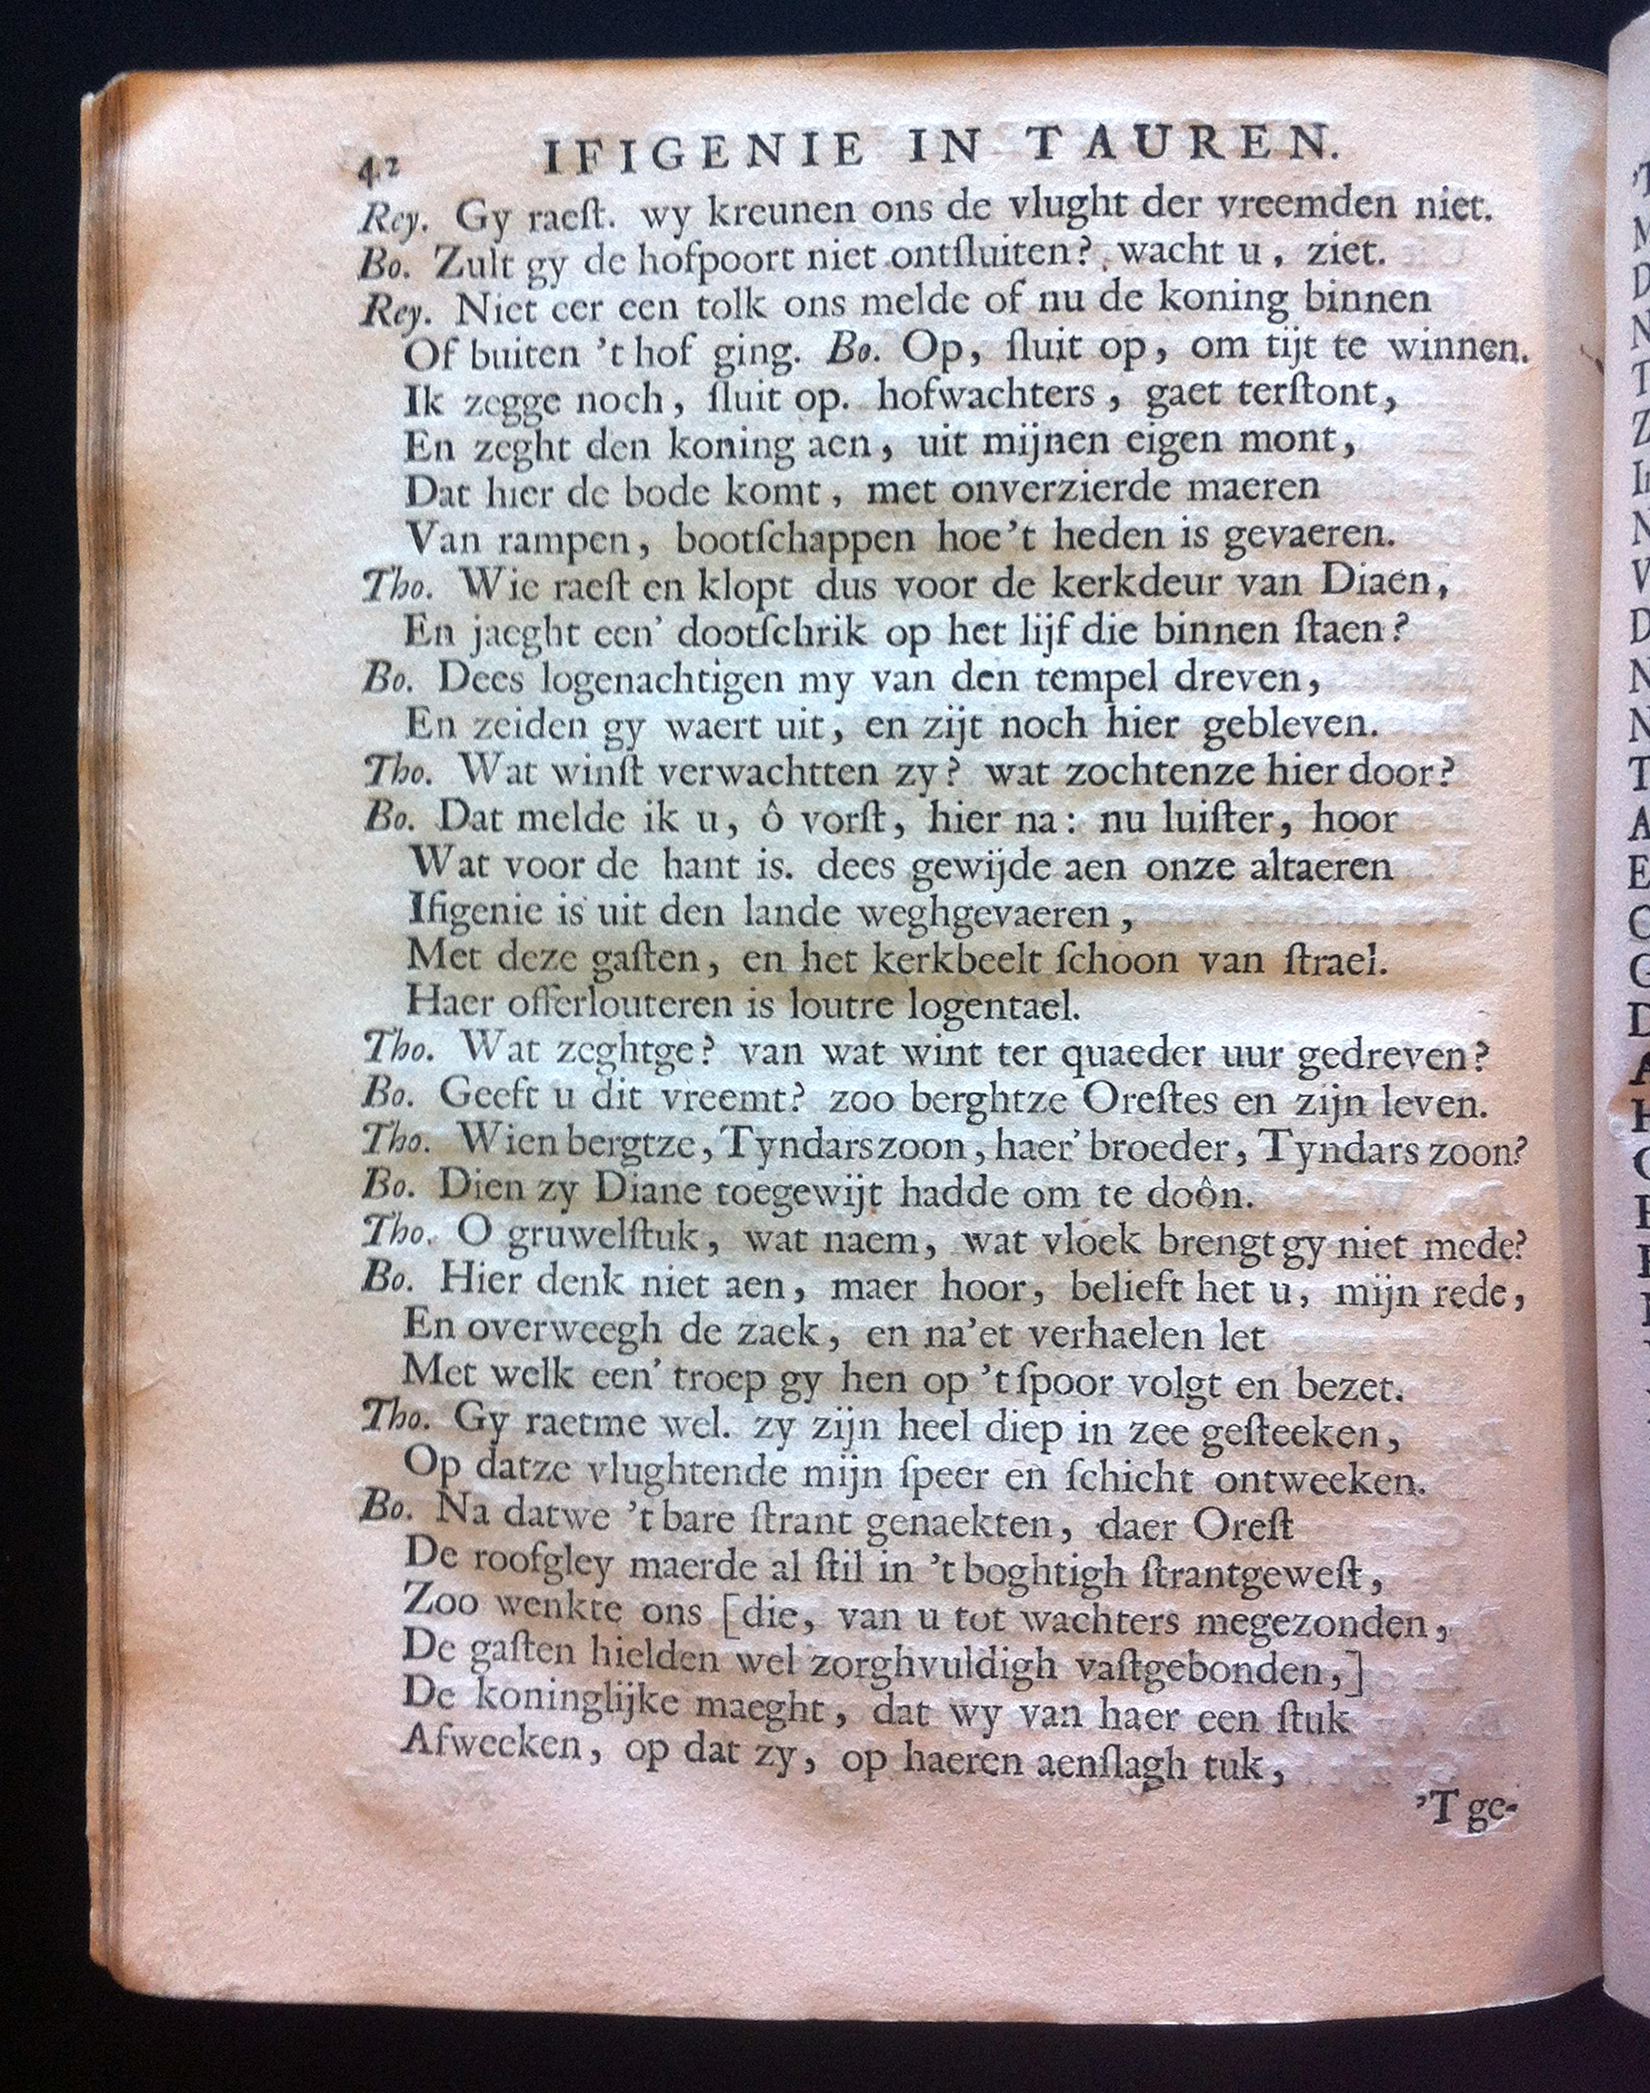 42 IFIGENIE IN TAUREN.
Rey. Gy raeſt. wy kreunen ons de vlught der vreemden niet.
Bo. Zult gy de hofpoort niet ontſluiten? wacht u, ziet.
Rey. Niet eer een tolk ons melde of nu de koning binnen
Of buiten 't hof ging. Bo. Op, ſluit op, om tijt te winnen.
Ik zegge noch, ſluit op. hofwachters, gaet terſtont,
En zeght den koning aen, uit mijnen eigen mont,
Dat hier de bode komt, met onverzierde maeren
Van rampen, bootſchappen hoe't heden is gevaeren.
Tho. Wie raeſt en klopt dus voor de kerkdeur van Diaen,
En jaeght een' dootſchrik op het lijf die binnen ſtaen?
Bo. Dees logenachtigen my van den tempel dreven,
En zeiden gy waert uit, en zijt noch hier gebleven.
Tho. Wat winſt verwachtten zy? wat zochtenze hier door?
Bo. Dat melde ik u, ô vorſt, hier na: nu luiſter, hoor
Wat voor de hant is. dees gewijde aen onze altaeren
Ifigenie is uit den lande weghgevaeren,
Met deze gaſten, en het kerkbeelt ſchoon van ſtrael.
Haer offerlouteren is loutre logentael.
Tho. Wat zeghtge? van wat wint ter quaeder uur gedreven?
Bo. Geeft u dit vreemt? zoo berghtze Oreſtes en zijn leven.
Tho. Wien bergtze, Tyndars zoon, haer' broeder, Tyndars zoon?
Bo. Dien zy Diane toegewijt hadde om te doôn.
Tho. O gruwelſtuk, wat naem, wat vloek brengt gy niet mede?
Bo. Hier denk niet aen, maer hoor, belieft het u, mijn rede,
En overweegh de zaek, en na'et verhaelen let
Met welk een' troep gy hen op 't ſpoor volgt en bezet.
Tho. Gy raetme wel. zy zijn heel diep in zee geſteeken,
Op datze vlughtende mijn ſpeer en ſchicht ontweeken.
Bo. Na datwe 't bare ſtrant genaekten, daer Oreſt
De roofgley maerde al ſtil in 't boghtigh ſtrantgeweſt,
Zoo wenkte ons [die, van u tot wachters megezonden,
De gaſten hielden wel zorghvuldigh vaſtgebonden,]
De koninglijke maeght, dat wy van haer een ſtuk
Afweeken, op dat zy, op haeren aenſlagh tuk,
'T ge-